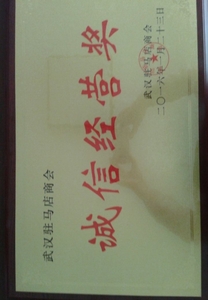 武汉驻马店商会
诚信经营奖
武汉驻马店商会
二〇一六年 月二十三日